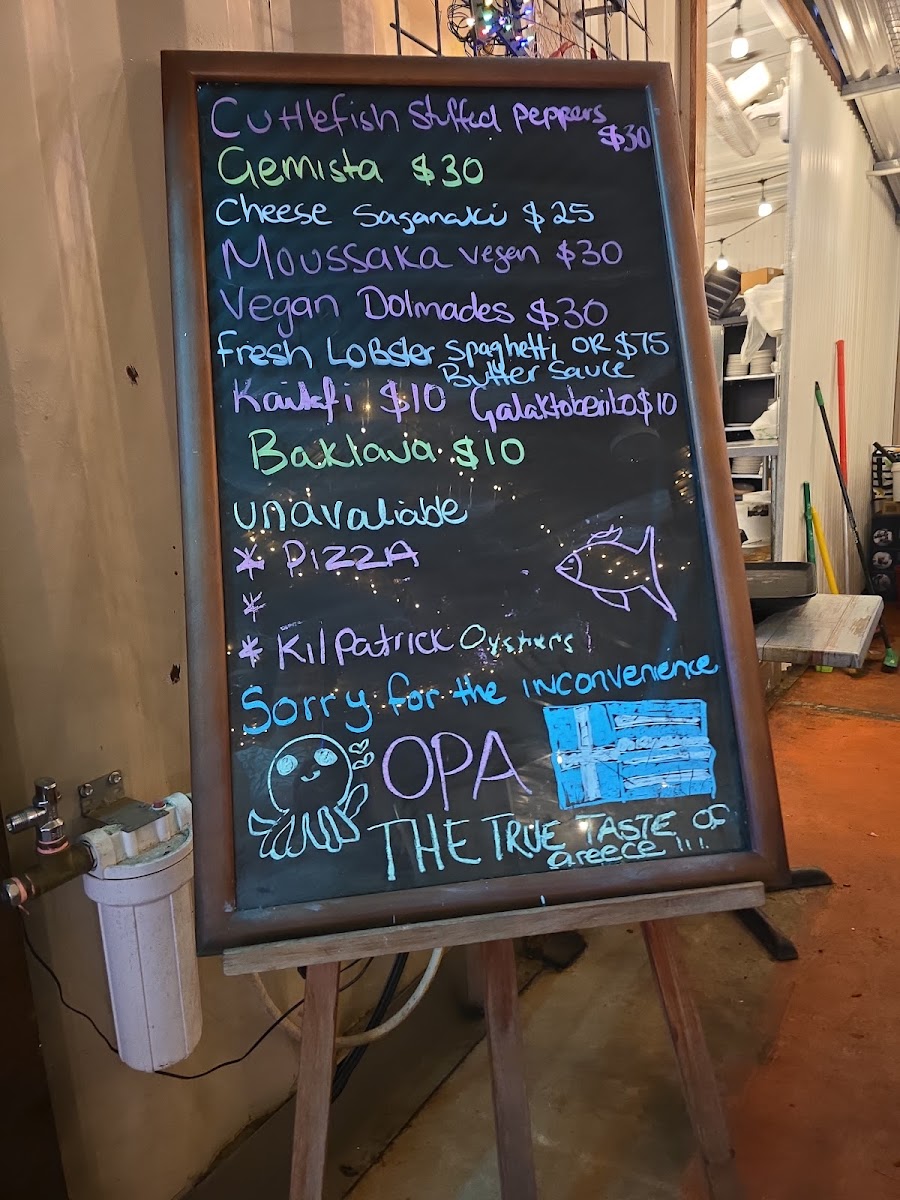 Cuttlefish Stuffed Peppers
$30
Gemista $30
Cheese Saganaki $25
Moussaka vegan $30
Vegan Dolmades $30
Fresh Lobster Spaghetti OR $75
Butter Sauce
Kaitifi $10 Galaktoberiko $10
Baklava $10
unavaliable
* PIZZA
*
* Kilpatrick Oysters
Sorry for the inconvenience
OPA
THE TRUE TASTE OF
Greece !!!